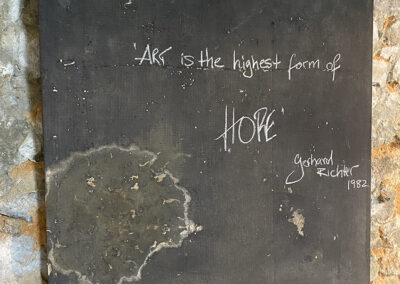 'ART is the highest form of
HOPE'
Gerhard
Richter
1982